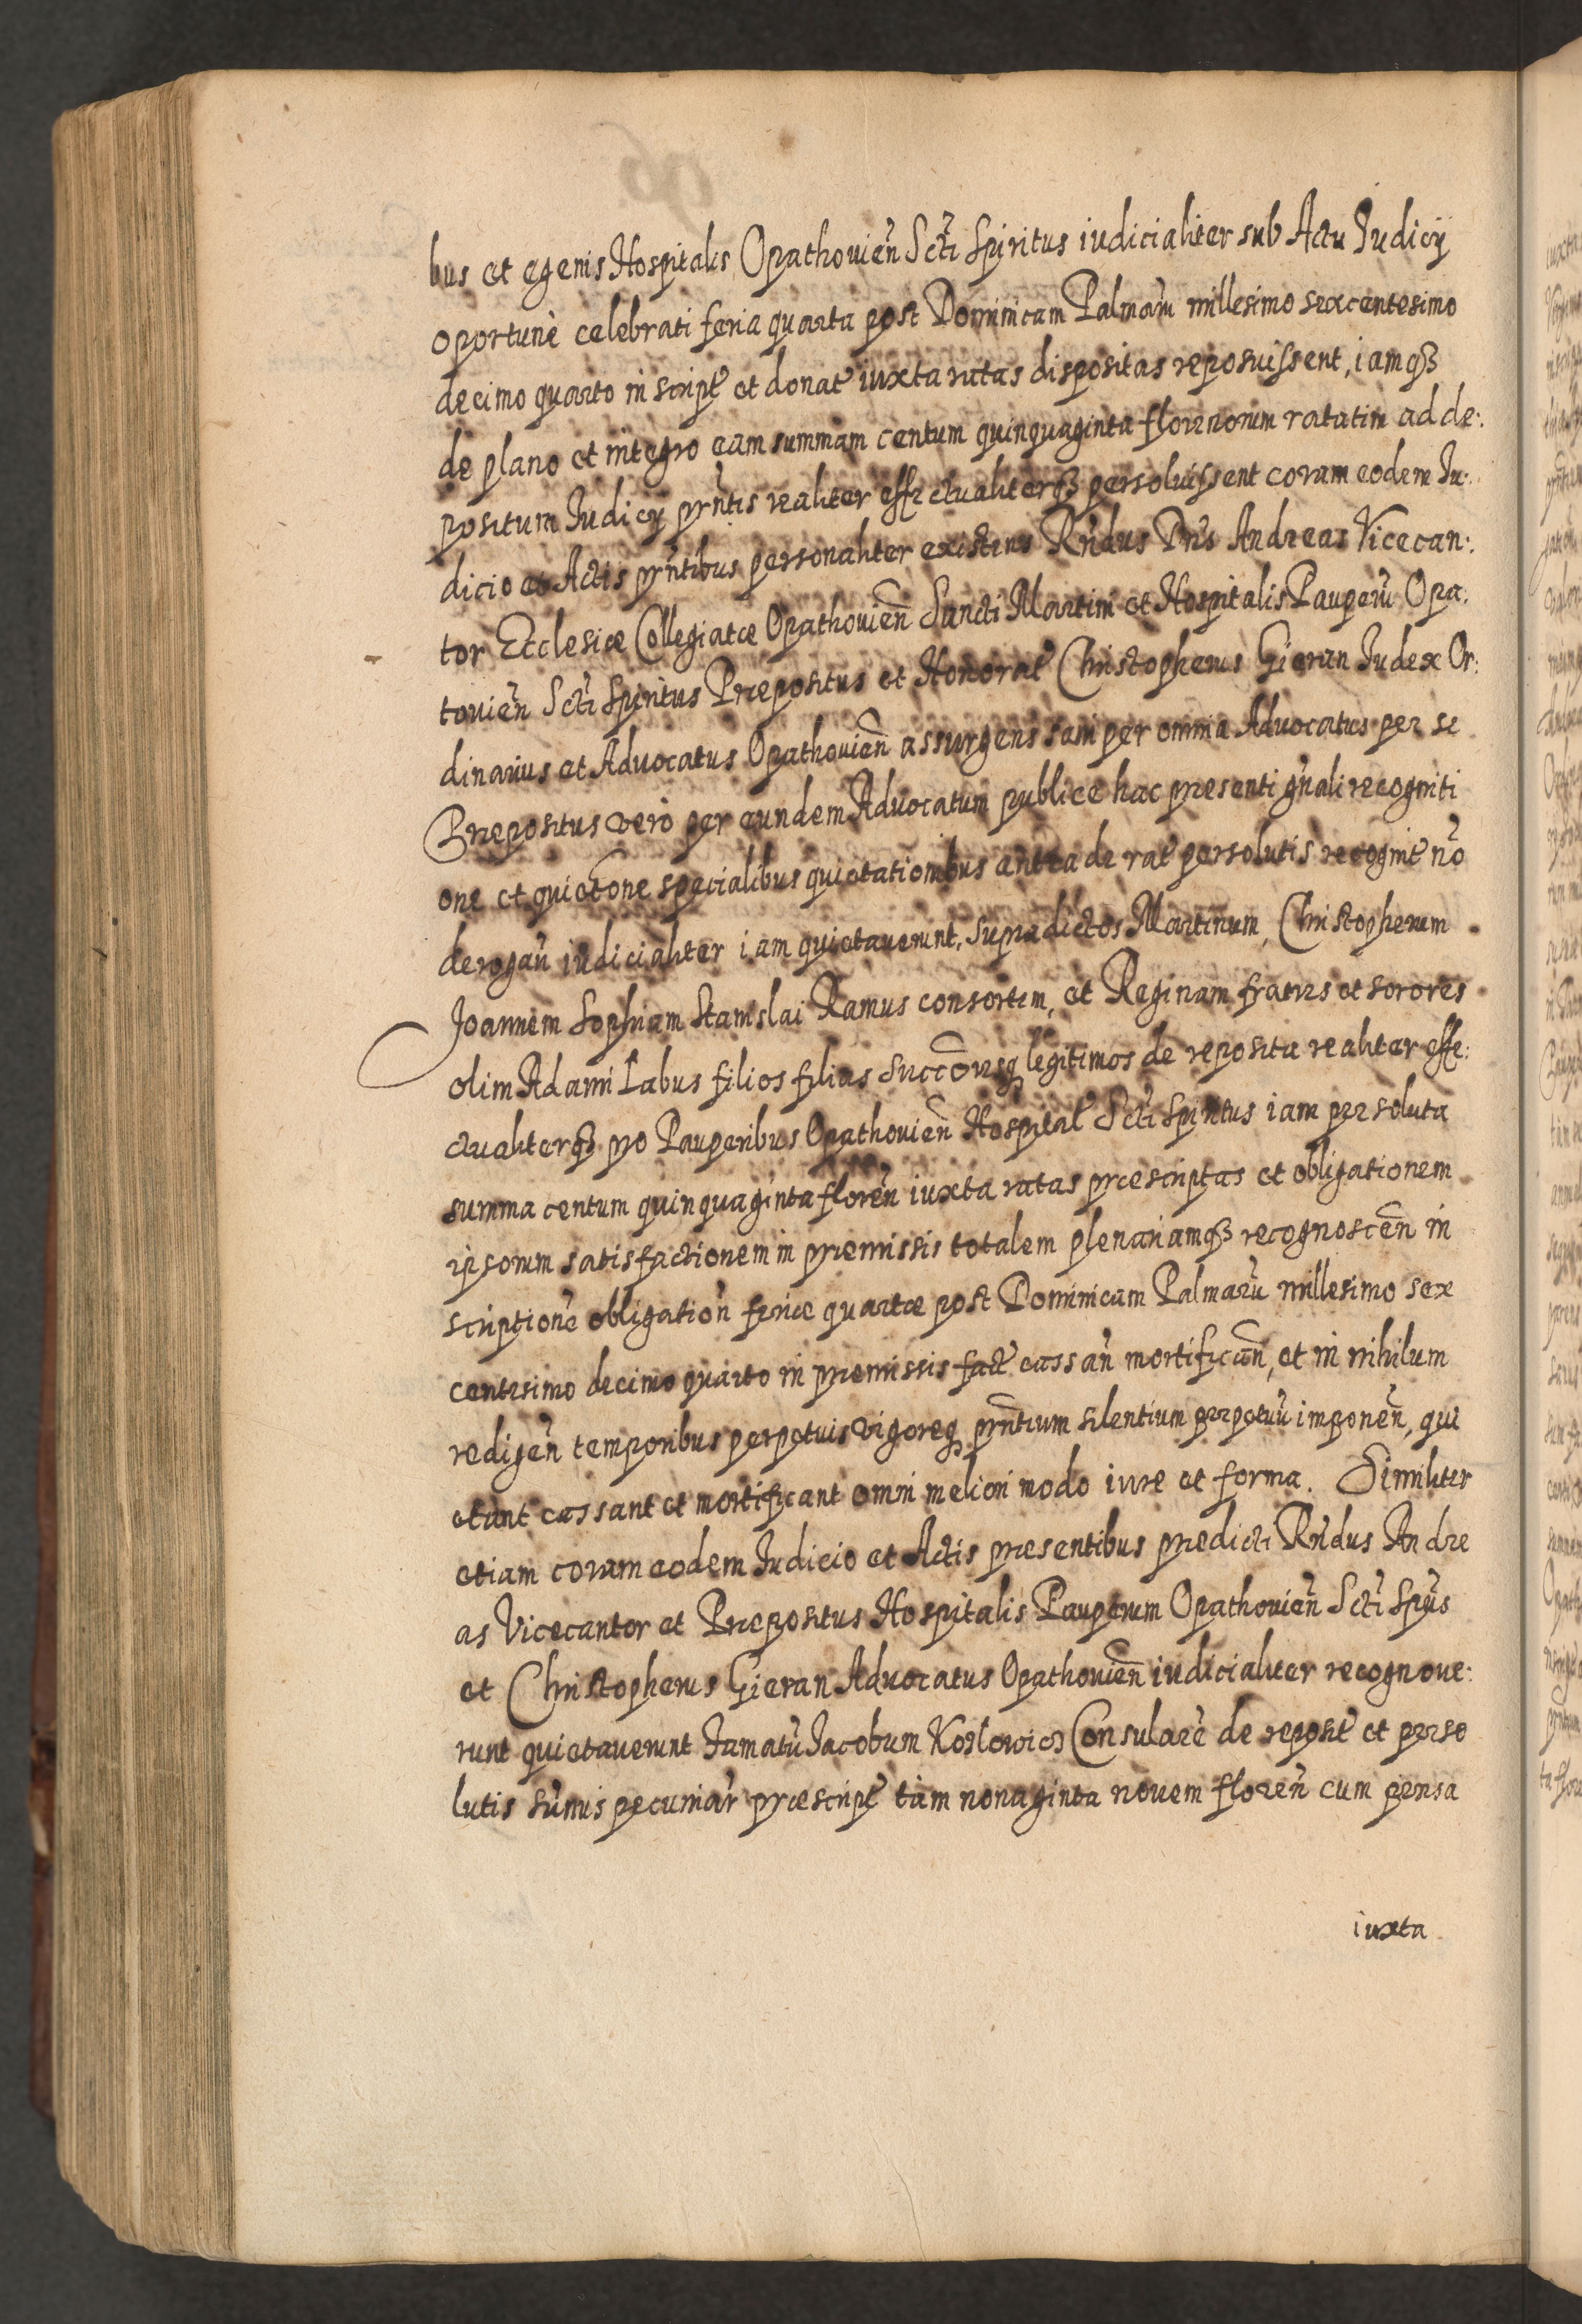 bus et egenis Hospitalis Opathouien̄ Scti Spiritus iudicialiter sub Actu Iudicij
oportunè celebrati feria quarta post Dominicam Palmarū millesimo sexcentesimo
decimo quarto in script̄ et donat̄ iuxta ratas dispositas reposuissent, iamqȝ
de plano et integro eam summam centum quinquaginta florenorum ratatim ad de:
positum Iudicij pn̄tis realiter effectualiterqȝ persoluissent coram eodem Iu:
dicio et Actis pn̄tibus personaliter existens Rn̄dus Dn̄s Andreas Vicecan:
tor Ecclesiæ Collegiatæ Opathouien̄ Sancti Martini et Hospitalis Pauperū Opa:
touien̄ Scti Spiritus Præpositus et Honorat̄ Christopherus Gieran Iudex Or:
dinarius et Aduocatus Opathouien̄ assurgens sani per omnia Aduocatus per se
Præpositus vero per eundem Aduocatum publice hac presenti gn̄ali recogniti
one et quietōne specialibus quietationibus antea de rat̄ persolutis recognit̄ nō
derogan̄ iudicialiter iam quietauerunt, supradictos Martinum, Christopherum
Joannem Sophiam Stanislai Ramus consortem, et Reginam fratres et sorores
olim Adami Labus filios filias succōresq legitimos de reposita realiter effe:
ctualiterqȝ pro Pauperibus Opathouien̄ Hospital̄ Scti Spiritus iam persoluta
summa centum quinquaginta floren̄ iuxta ratas præscriptas et obligationem
ipsorum satisfactionem in præmissis totalem plenariamqȝ recognoscen̄ in
scriptionē obligation̄ feriæ quartæ post Dominicam Palmarū millesimo sex
centesimo decimo quarto in præmissis fact̄ cassan̄ mortifican̄, et in nihilum
redigen̄ temporibus perpetuis vigoreq pn̄tium silentium perpetuū imponen̄, qui
etant cassant et mortificant omni meliori modo iure et forma. Similiter
etiam coram eodem Iudicio et Actis presentibus predicti Rn̄dus Andre
as Vicecantor et Præpositus Hospitalis Pauperum Opathouien̄ Scti Spūs
et Christopherus Gieran Aduocatus Opathouien̄ iudicialiter recognoue:
runt quietauerunt Famatū Iacobum Kozlowicz Consularē de reposit̄ et perso
lutis sūmis pecuniar̄ præscript̄ tam nonaginta nouem floren̄ cum pensa
iuxta